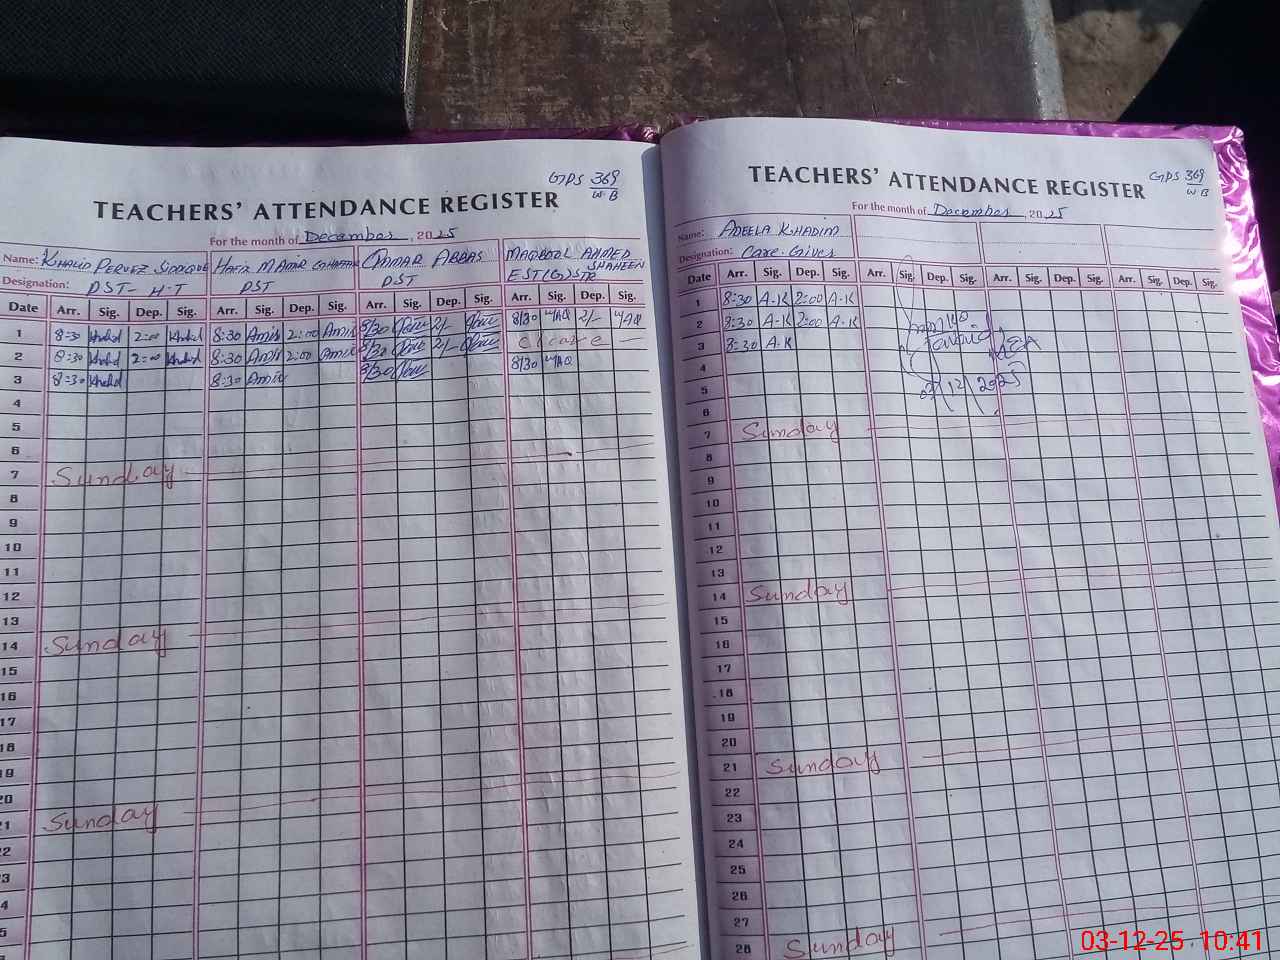 GPS 369
W B
TEACHERS' ATTENDANCE REGISTER
For the month of December, 2025
Name: KHALID PERVEZ SIDDIQUE HAFIZ M AMIR AMMAR ABBAS MAQBOOL AHMED SHAHEEN
Designation: PST - H-T PST PST EST(G)STR
Date Arr. Sig. Dep. Sig. Arr. Sig. Dep. Sig. Arr. Sig. Dep. Sig. Arr. Sig. Dep. Sig.
1 8:30 Khalid 2:00 Khalid 8:30 Amir 2:00 Amir 8/30 2/- 8/30 MAQ 2/- MAQ
2 8:30 Khalid 2:00 Khalid 8:30 Amir 2:00 Amir 8/30 2/-
3 8:30 Khalid 8:30 Amir 8/30 8/30 MAQ
4
5
6
7 Sunday
8
9
10
11
12
13
14 Sunday
15
16
17
18
19
20
21 Sunday
22
23
24
25
GPS 369
W B
TEACHERS' ATTENDANCE REGISTER
For the month of December, 2025
Name: ADEELA KHADIM
Designation: Care Giver
Date Arr. Sig. Dep. Sig. Arr. Sig. Dep. Sig. Arr. Sig. Dep. Sig. Arr. Sig. Dep. Sig.
1 8:30 A-K 2:00 A-K
2 8:30 A-K 2:00 A-K
3 8:30 A-K
4
MEA
5
6
7 Sunday
8
9
10
11
12
13
14 Sunday
15
16
17
18
19
20
21 Sunday
22
23
24
25
26
27
28 Sunday
03-12-25 10:41